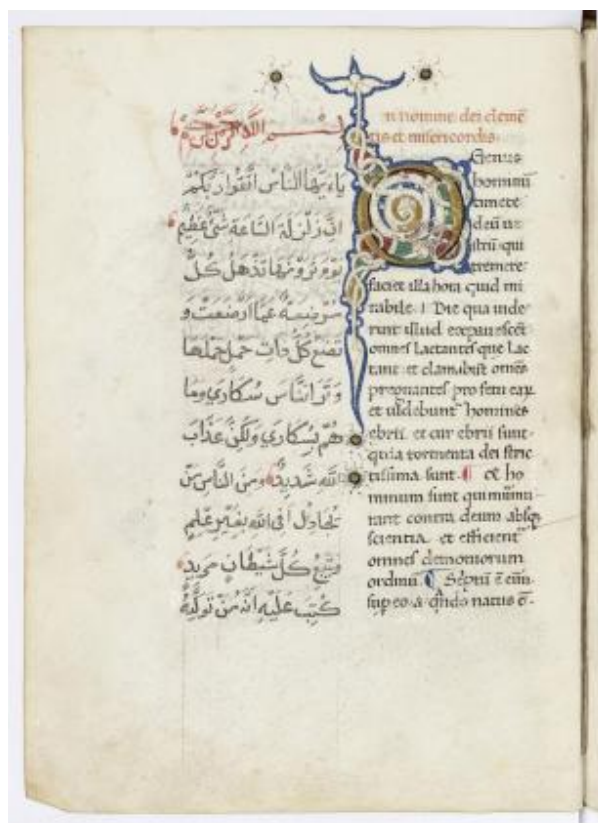 بسم الله الرحمن الرحيم
ياءيها الناس اتقوا ربكم
ان زلزلة الساعة شئ عظيم
يوم ترونها تذهل كل
مرضعة عما ارضعت و
تضع كل ذات حمل حملها
وترا الناس سكارى وما
هم بسكارى ولكن عذاب
الله شديد ومن الناس من
يجادل فى الله بغير علم
ويتبع كل شيطان مريد
كتب عليه انه من
n nomine dei clemē
tis et misericordis.
Genus
hominū
timete
deū ue
strū qui
tremere
faciet illa hora quid mi
rabile. I Die qua uide
runt illud expauescēt
omnes lactantes que lac
tant et clamabūt omēs
pregnantes pro fetu
et uidebunt homines
ebrii. et cur ebrii sunt
quia tormenta dei stric
tissima sunt. ¶ Et ho
minum sunt qui
rant contra deum absq
scientia. et efficient
omnes demoniorum
ordinū. ¶ ē
sup eo natus ē.